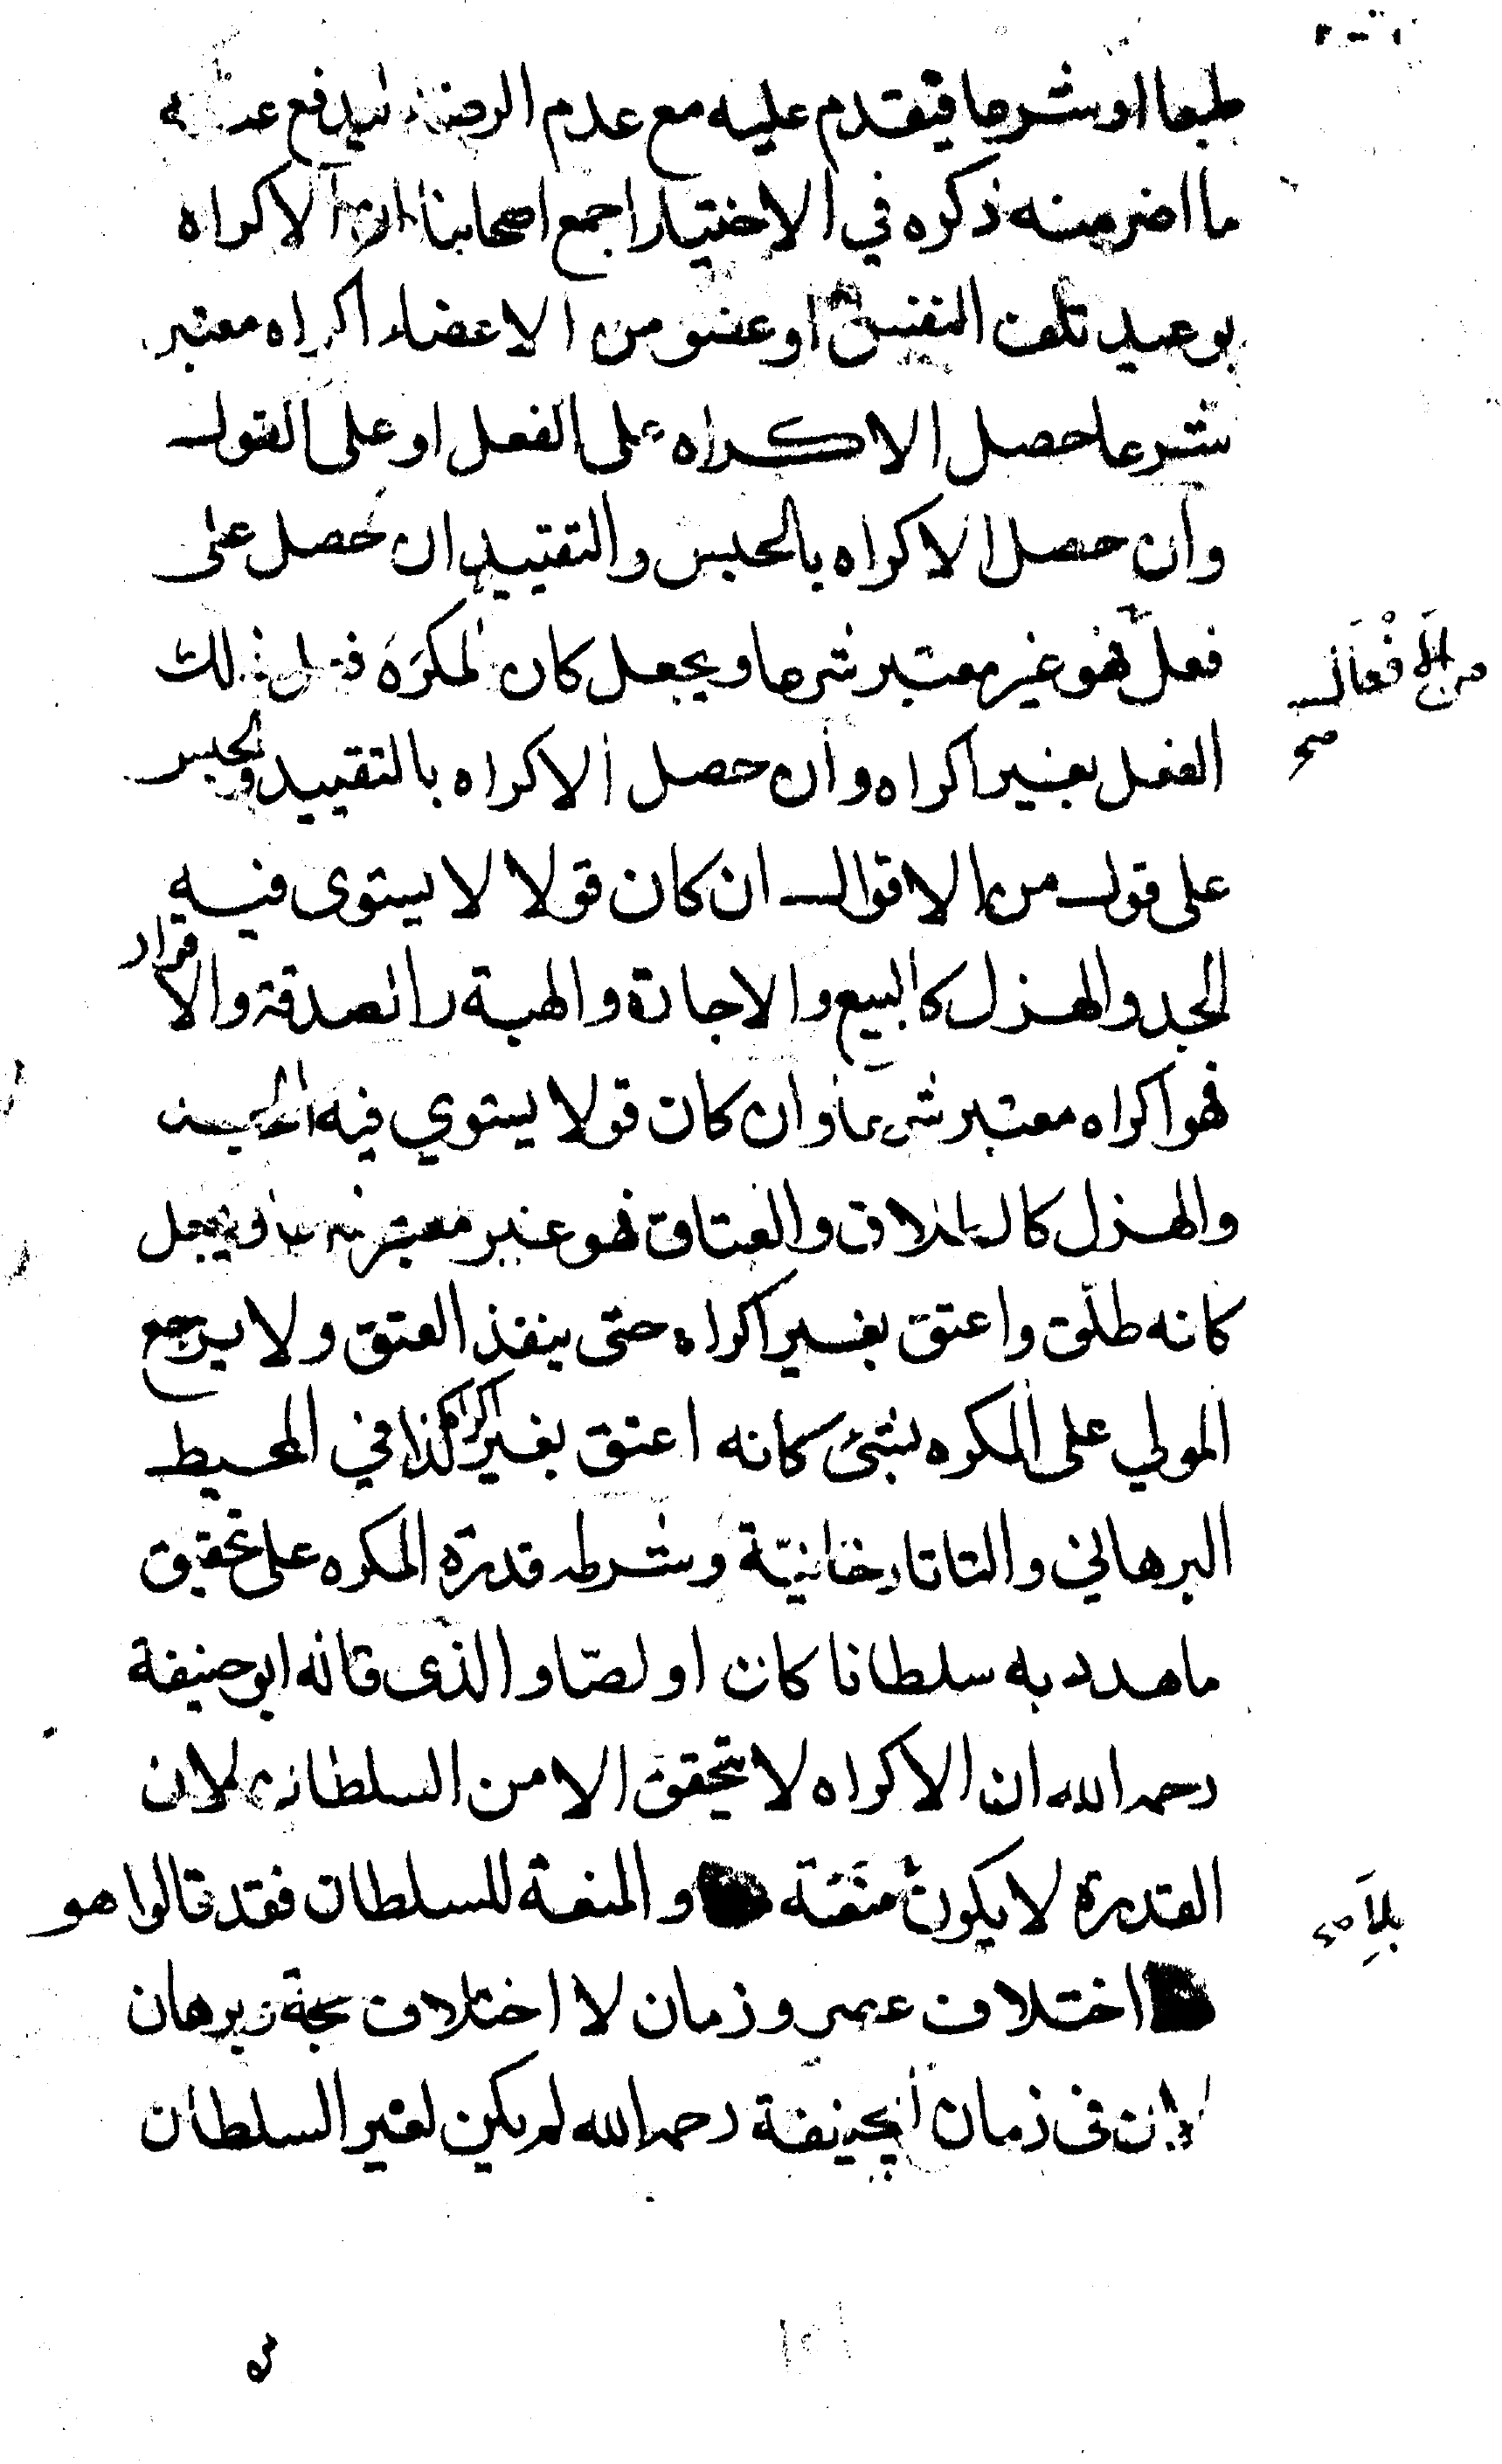 طبعا او شرعا فيقدم عليه مع عدم الرضاء ليدفع عنه
ما اضر منه ذكره في الاختيار اجمع اصحابنا ان الاكراه
بوعيد تلف النفس او عضو من الاعضاء اكراه معتبر
شرعا حصل الاكراه على الفعل او على القول
وان حصل الاكراه بالحبس والتقييد ان حصل على
فعل فهو غير معتبر شرعا ويجعل كان المكرَه فعل ذلك
من الافْعَال صح
الفعل بغير اكراه وان حصل الاكراه بالتقييد والحبس
على قول من الاقوال ان كان قولا لا يستوى فيه
الجد والهزل كالبيع والاجارة والهبة والصدقة والاقرار
فهو اكراه معتبر شرعا وان كان قولا يستوي فيه الجد
والهزل كالطلاق والعتاق فهو غير معتبر شرعا ويجعل
كانه طلّق واعتق بغير اكراه حتى ينفذ العتق ولا يرجع
المولي على المكره بشئ كانه اعتق بغير اكراه كذا في المحيط
البرهاني والتاتارخانيّة وشرطه قدرة المكره على تحقيق
ما هدد به سلطانا كان او لصّا والذى قاله ابو حنيفة
رحمه الله ان الاكراه لا يتحقق الا من السلطان لان
القدرة لا يكون منَعَة والمنعة للسلطان فقد قالوا هو
بلَا صح
اختلاف عصر وزمان لا اختلاف حجة وبرهان
لان في زمان ابيحنيفة رحمه الله لم يكن لغير السلطان